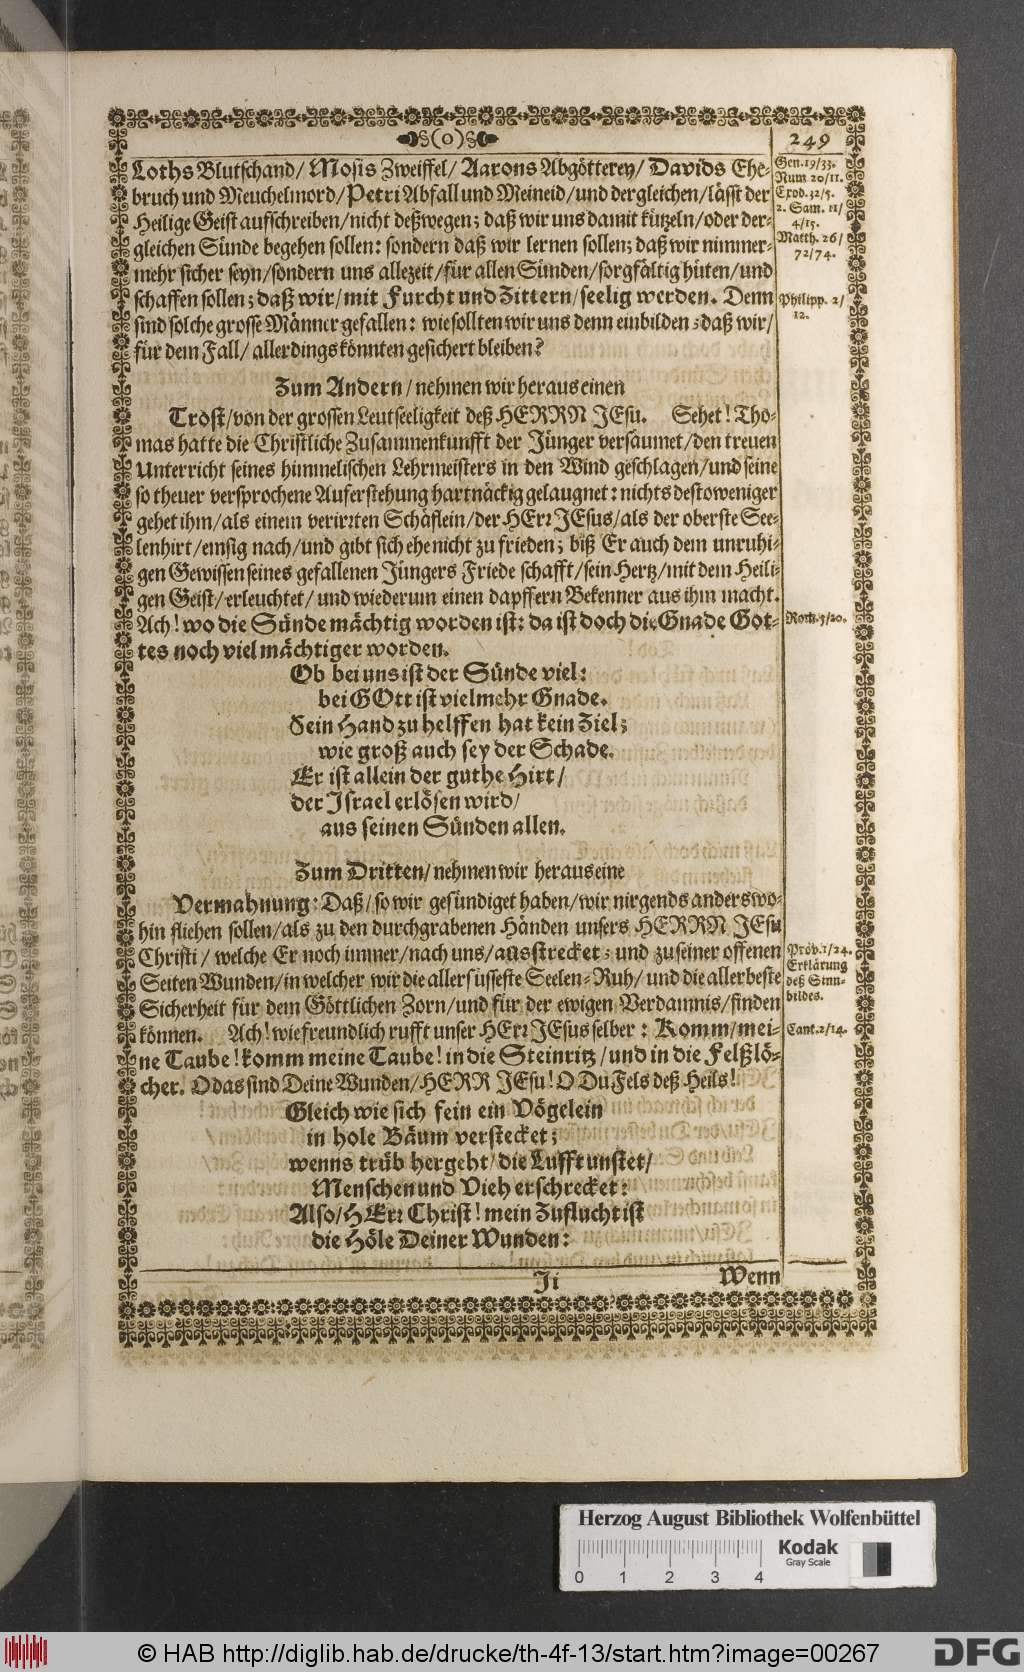 §(o)§
249
Loths Blutschand/ Mosis Zweiffel/ Aarons Abgötterey/ Davids Ehe-
bruch und Meuchelmord/ Petri Abfall und Meineid/ und dergleichen/ lässt der
Heilige Geist aufschreiben/ nicht deßwegen; daß wir uns damit kützeln/ oder der-
gleichen Sünde begehen sollen: sondern daß wir lernen sollen; daß wir nimmer-
mehr sicher seyn/ sondern uns allezeit/ für allen Sünden/ sorgfältig hüten/ und
schaffen sollen; daß wir/ mit Furcht und Zittern/ seelig werden. Denn
sind solche grosse Männer gefallen: wie sollten wir uns denn einbilden; daß wir/
für dem Fall/ allerdings könnten gesichert bleiben?
Gen. 19/33.
Num 20/11.
Exod. 32/5.
2. Sam. 11/
4/15.
Matth. 26/
72/74.
Philipp. 2/
12.
Zum Andern/ nehmen wir heraus einen
Trost/ von der grossen Leutseeligkeit deß HERRN JEsu. Sehet! Tho-
mas hatte die Christliche Zusammenkunfft der Jünger versäumet/ den treuen
Unterricht seines himmelischen Lehrmeisters in den Wind geschlagen/ und seine
so theuer versprochene Auferstehung hartnäckig gelaugnet: nichts destoweniger
gehet ihm/ als einem verirrten Schäflein/ der HErr JEsus/ als der oberste See-
lenhirt/ emsig nach/ und gibt sich ehe nicht zu frieden; biß Er auch dem unruhi-
gen Gewissen seines gefallenen Jüngers Friede schafft/ sein Hertz/ mit dem Heili-
gen Geist/ erleuchtet/ und wiederum einen dapffern Bekenner aus ihm macht.
Ach! wo die Sünde mächtig worden ist: da ist doch die Gnade Got-
tes noch viel mächtiger worden.
Rom. 5/20.
Ob bei uns ist der Sünde viel:
bei GOtt ist vielmehr Gnade.
Sein Hand zu helffen hat kein Ziel;
wie groß auch sey der Schade.
Er ist allein der guthe Hirt/
der Israel erlösen wird/
aus seinen Sünden allen.
Zum Dritten/ nehmen wir heraus eine
Vermahnung: Daß/ so wir gesündiget haben/ wir nirgends anderswo-
hin fliehen sollen/ als zu den durchgrabenen Händen unsers HERRN JEsu
Christi/ welche Er noch immer/ nach uns/ ausstrecket; und zu seiner offenen
Seiten Wunden/ in welcher wir die allersüsseste Seelen-Ruh/ und die allerbeste
Sicherheit für dem Göttlichen Zorn/ und für der ewigen Verdamnis/ finden
können. Ach! wie freundlich rufft unser HErr JEsus selber: Komm/ mei-
ne Taube! komm meine Taube! in die Steinritz/ und in die Felßlö-
cher. O das sind Deine Wunden/ HERR JEsu! O Du Fels deß Heils!
Prov. 1/24.
Erklärung
deß Sinn-
bildes.
Cant. 2/14.
Gleich wie sich fein ein Vögelein
in hole Bäum verstecket;
wenns trüb hergeht/ die Lufft unstet/
Menschen und Vieh erschrecket:
Also/ HErr Christ! mein Zuflucht ist
die Höle Deiner Wunden:
Ji
Wenn
Herzog August Bibliothek Wolfenbüttel
Kodak
Gray Scale
0 1 2 3 4
© HAB http://diglib.hab.de/drucke/th-4f-13/start.htm?image=00267
DFG